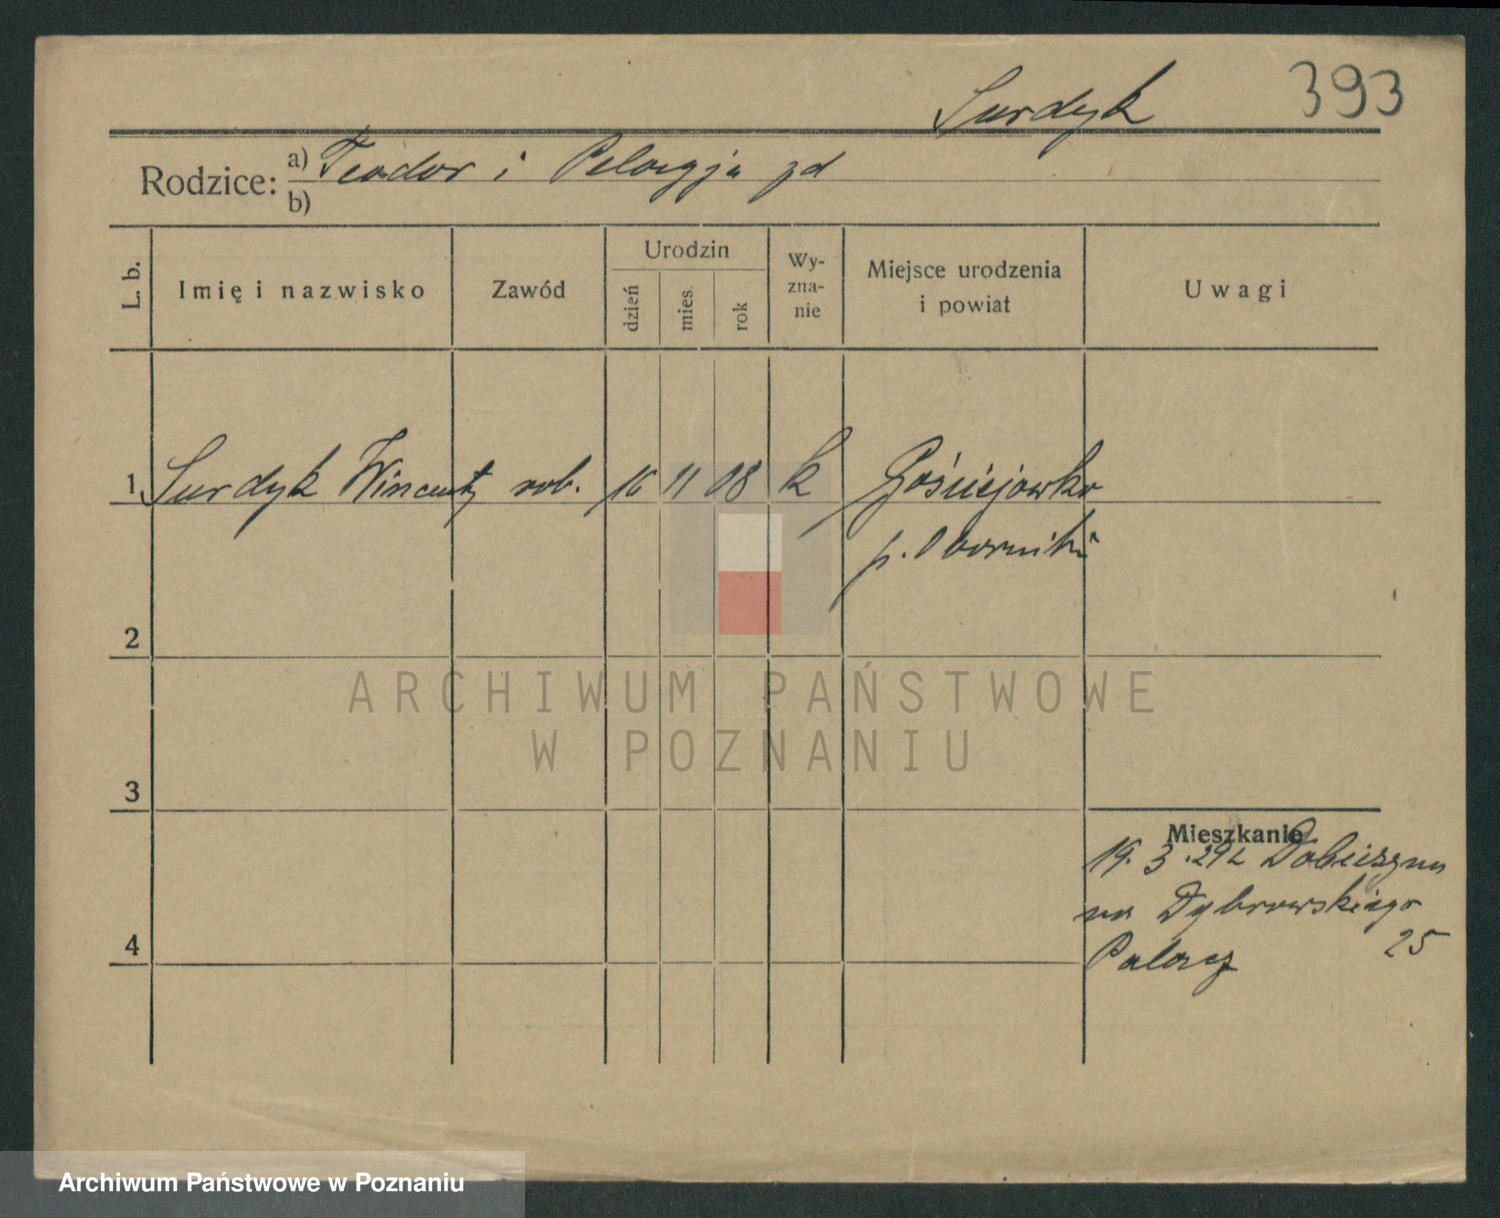 Surdyk 393
Rodzice: a) Teodor i Pelagja zd
b)
L. b. Imię i nazwisko Zawód Urodzin dzień mies. rok Wyznanie Miejsce urodzenia i powiat Uwagi
1 Surdyk Wincenty rob. 16 11 08 k Gościejewko
p. Oborniki
2
ARCHIWUM PAŃSTWOWE
W POZNANIU
3
Mieszkanie
19. 3. 29 z
na Dąbrowskiego
25
4
Palacz
Archiwum Państwowe w Poznaniu